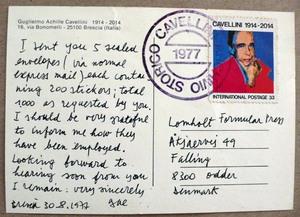 Guglielmo Achille Cavellini 1914 - 2014
16, via Bonomelli - 25100 Brescia (Italia)
I sent you 5 sealed
envelopes (via normal
express mail) each conta-
ining 200 stickers; total
1000 as requested by you.
I should be very grateful
to inform me how they
have been employed.
Looking forward to
hearing soon from you
I remain: very sincerely
30.8.1977
CAVELLINI
1977
ARCHIVIO STORICO
CAVELLINI 1914-2014
INTERNATIONAL POSTAGE 33
Lomholt Formular Press
Aksjærvej 49
Falling
8300 Odder
Denmark